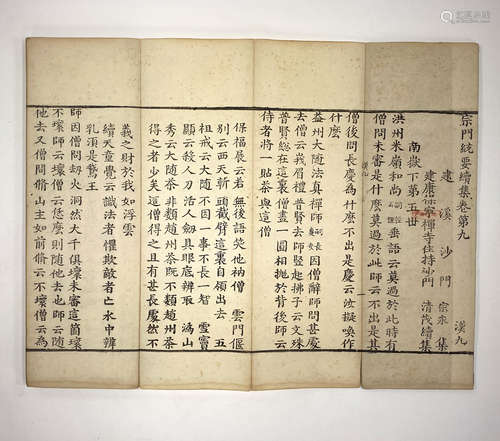 宗門統要續集卷第九 漢九
建溪沙門 宗永 集
建康 禪寺住持沙門 清茂續集
南嶽下第五世
洪州米嶺和尚 垂語云莫過於此時有
僧問未審是什麼莫過於此師云不出是其
僧後問長慶為什麼不出是慶云汝擬喚作
什麼
益州大隨法真禪師 因僧辭師問甚處
去僧云峩眉禮普賢去師竪起拂子云文殊
普賢總在這裏僧畫一圓相拋於背後師云
侍者將一貼茶與這僧
保福展云若無後語笑他衲僧 雲門偃
別云西天斬頭截臂這裏自領出去 五
祖戒云大隨不因一事不長一智 雪竇
顯云殺人刀活人劍具眼底辨取 溈山
秀云大隨茶非類趙州茶既不類趙州茶
得之者少矣這僧得之且有甚長處然不
義之財於我如浮雲
續天童覺云識法者懼欺敵者亡水中辨
乳須是鵞王
師因僧問劫火洞然大千俱壞未審這箇壞
不壞師云壞僧云恁麼則隨他去也師云隨
他去又僧問脩山主如前脩云不壞僧云為